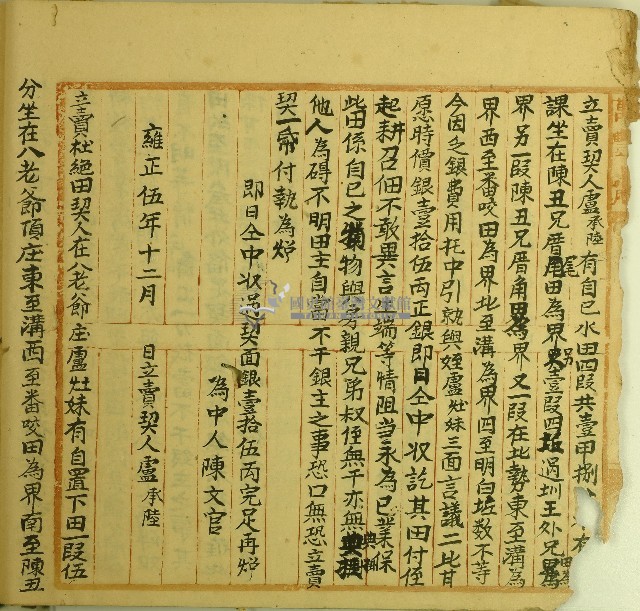 立賣契人盧承陸有自已水田四段共壹甲捌
課坐在陳丑兄厝尾田為界另壹段四坵過圳王外兄田為
界另一段陳丑兄厝角為界又一段在北勢東至溝為
界西至番咬田為界北至溝為界四至明白坵数不等
今因乏銀費用托中引就與姪盧灶妹三面言議二比甘
愿時價銀壹拾伍両正銀即日仝中收訖其田付侄
起耕召佃不敢異言 端等情阻当永為已業保
此田係自已之 物與房親兄弟叔侄無干亦無典掛
他人為碍不明田主自當不干銀主之事恐口無恐立賣
契一帋付執為炤
即日仝中收過契面銀壹拾伍両完足再炤
為中人陳文官
雍正伍年十二月 日立賣契人盧承陸
立賣杜絕田契人在八老爺庄盧灶妹有自置下田一段伍
分坐在八老爺頂庄東至溝西至番咬田為界南至陳丑